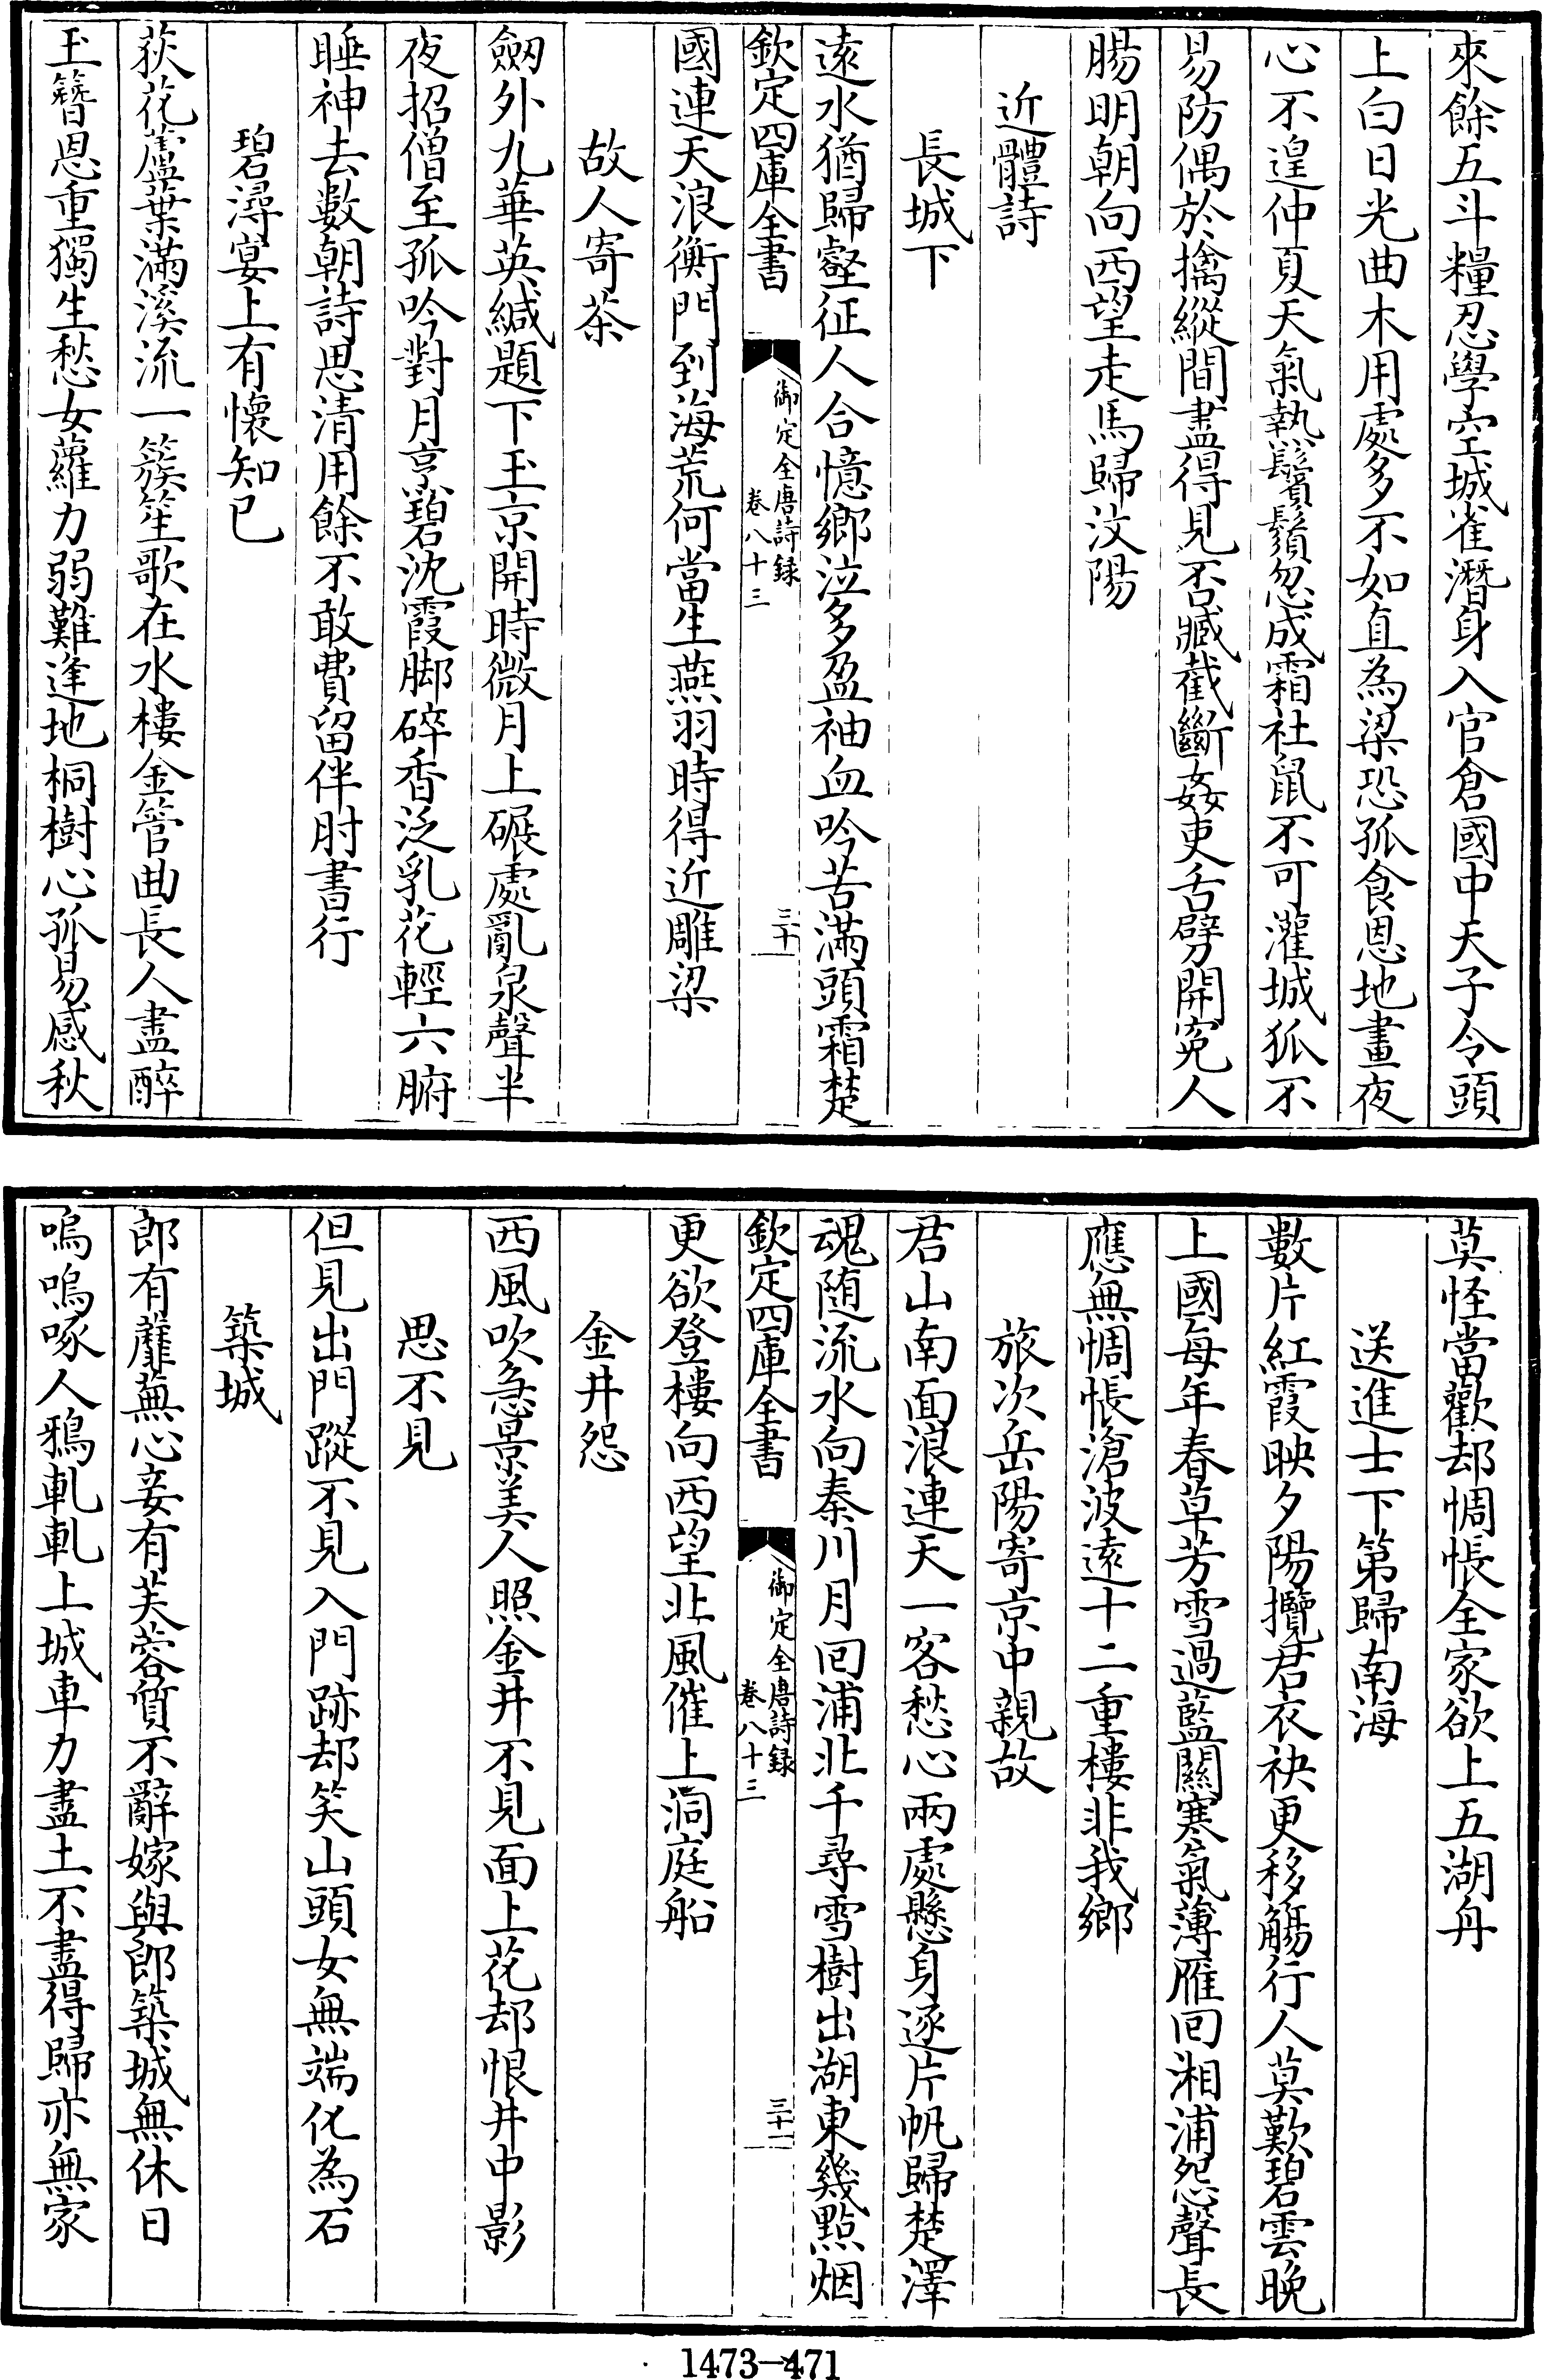 來餘五斗糧忍學空城雀潛身入官倉國中天子令頭
上白日光曲木用處多不如直為梁恐孤食恩地晝夜
心不遑仲夏天氣熱鬢鬚忽成霜社鼠不可灌城狐不
易防偶於擒縱間盡得見否臧截斷姦吏舌劈開寃人
腸明朝向西望走馬歸汶陽
近體詩
長城下
遠水猶歸壑征人合憶鄉泣多盈袖血吟苦滿頭霜楚
欽定四庫全書
御定全唐詩録
卷八十三
三十
國連天浪衡門到海荒何當生燕羽時得近雕梁
故人寄茶
劒外九華英緘題下玉京開時微月上碾處亂泉聲半
夜招僧至孤吟對月烹碧沈霞脚碎香泛乳花輕六腑
睡神去數朝詩思清用餘不敢費留伴肘書行
碧潯宴上有懷知已
荻花蘆葉滿溪流一簇笙歌在水樓金管曲長人盡醉
玉簪恩重獨生愁女蘿力弱難逢地桐樹心孤易感秋
莫怪當歡却惆悵全家欲上五湖舟
送進士下第歸南海
數片紅霞映夕陽攬君衣袂更移觴行人莫歎碧雲晚
上國每年春草芳雪過藍關寒氣薄雁囘湘浦怨聲長
應無惆悵滄波遠十二重樓非我鄉
旅次岳陽寄京中親故
君山南面浪連天一客愁心兩處懸身逐片帆歸楚澤
魂随流水向秦川月囘浦北千尋雪樹出湖東幾點烟
欽定四庫全書
御定全唐詩録
卷八十三
三十一
更欲登樓向西望北風催上洞庭船
金井怨
西風吹急景美人照金井不見面上花却恨井中影
思不見
但見出門蹤不見入門跡却笑山頭女無端化為石
築城
郎有蘼蕪心妾有芙蓉質不辭嫁與郎築城無休日
嗚嗚啄人鴉軋軋上城車力盡土不盡得歸亦無家
1473—471